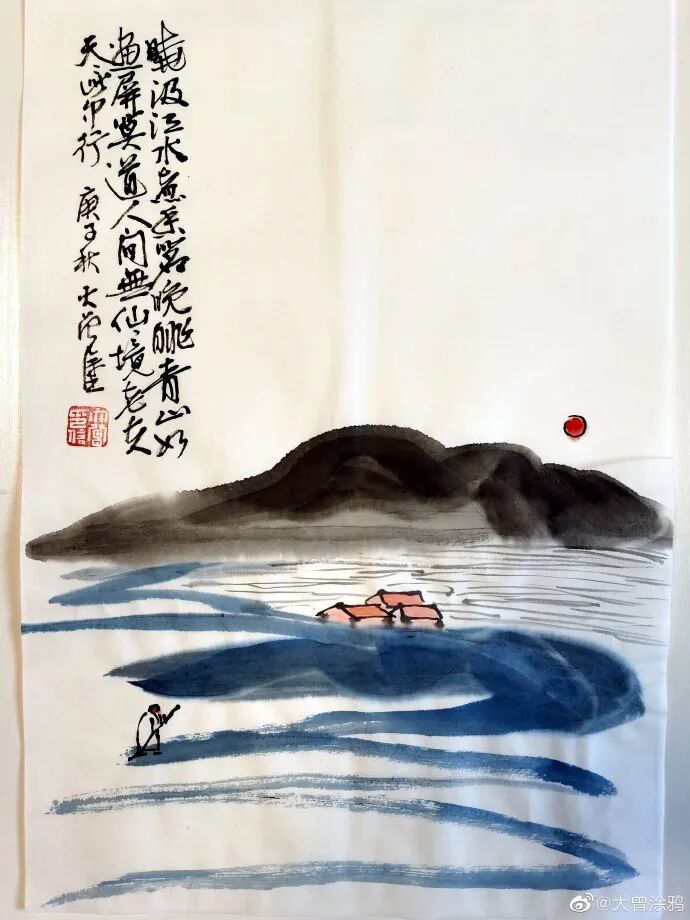 晓汲江水煮香茗晚眺青山如
画屏莫道人间無仙境老夫
天涯印行 庚子秋 大曾
@大曾涂鸦